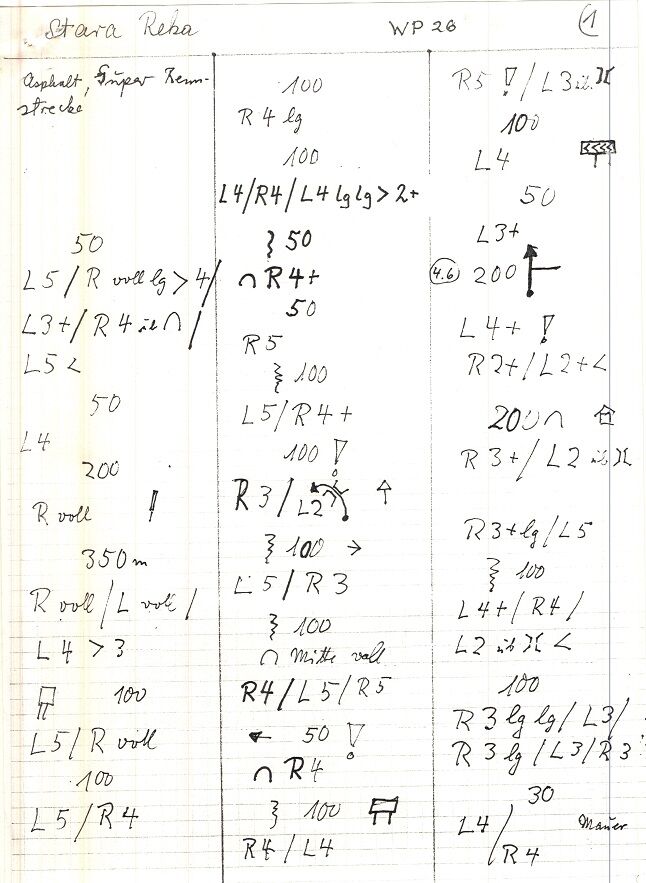 Stara Reka
WP 26
1
Asphalt, Super Renn-
strecke
50
L5 / R voll lg > 4 /
L3+ / R4 üb ∩ /
L5 <
50
L4
200
R voll !
350 m
R voll / L voll /
L4 > 3
100
L5 / R voll
100
L5 / R4
100
R4 lg
100
L4 / R4 / L4 lg lg > 2+
50
∩ R4+
50
R5
100
L5 / R4+
100 !
R3 / L2 ↑
100 →
L5 / R3
100
∩ Mitte voll
R4 / L5 / R5
← 50 !
∩ R4
100
R4 / L4
R5 ! / L3 üb )(
100
L4 <<<
50
L3+
4.6 200
L4+ !
R2+ / L2+ <
200 ∩
R3+ / L2 üb )(
R3+ lg / L5
100
L4+ / R4 /
L2 üb )( <
100
R3 lg lg / L3 /
R3 lg / L3 / R3
30
L4 / Mauer
R4